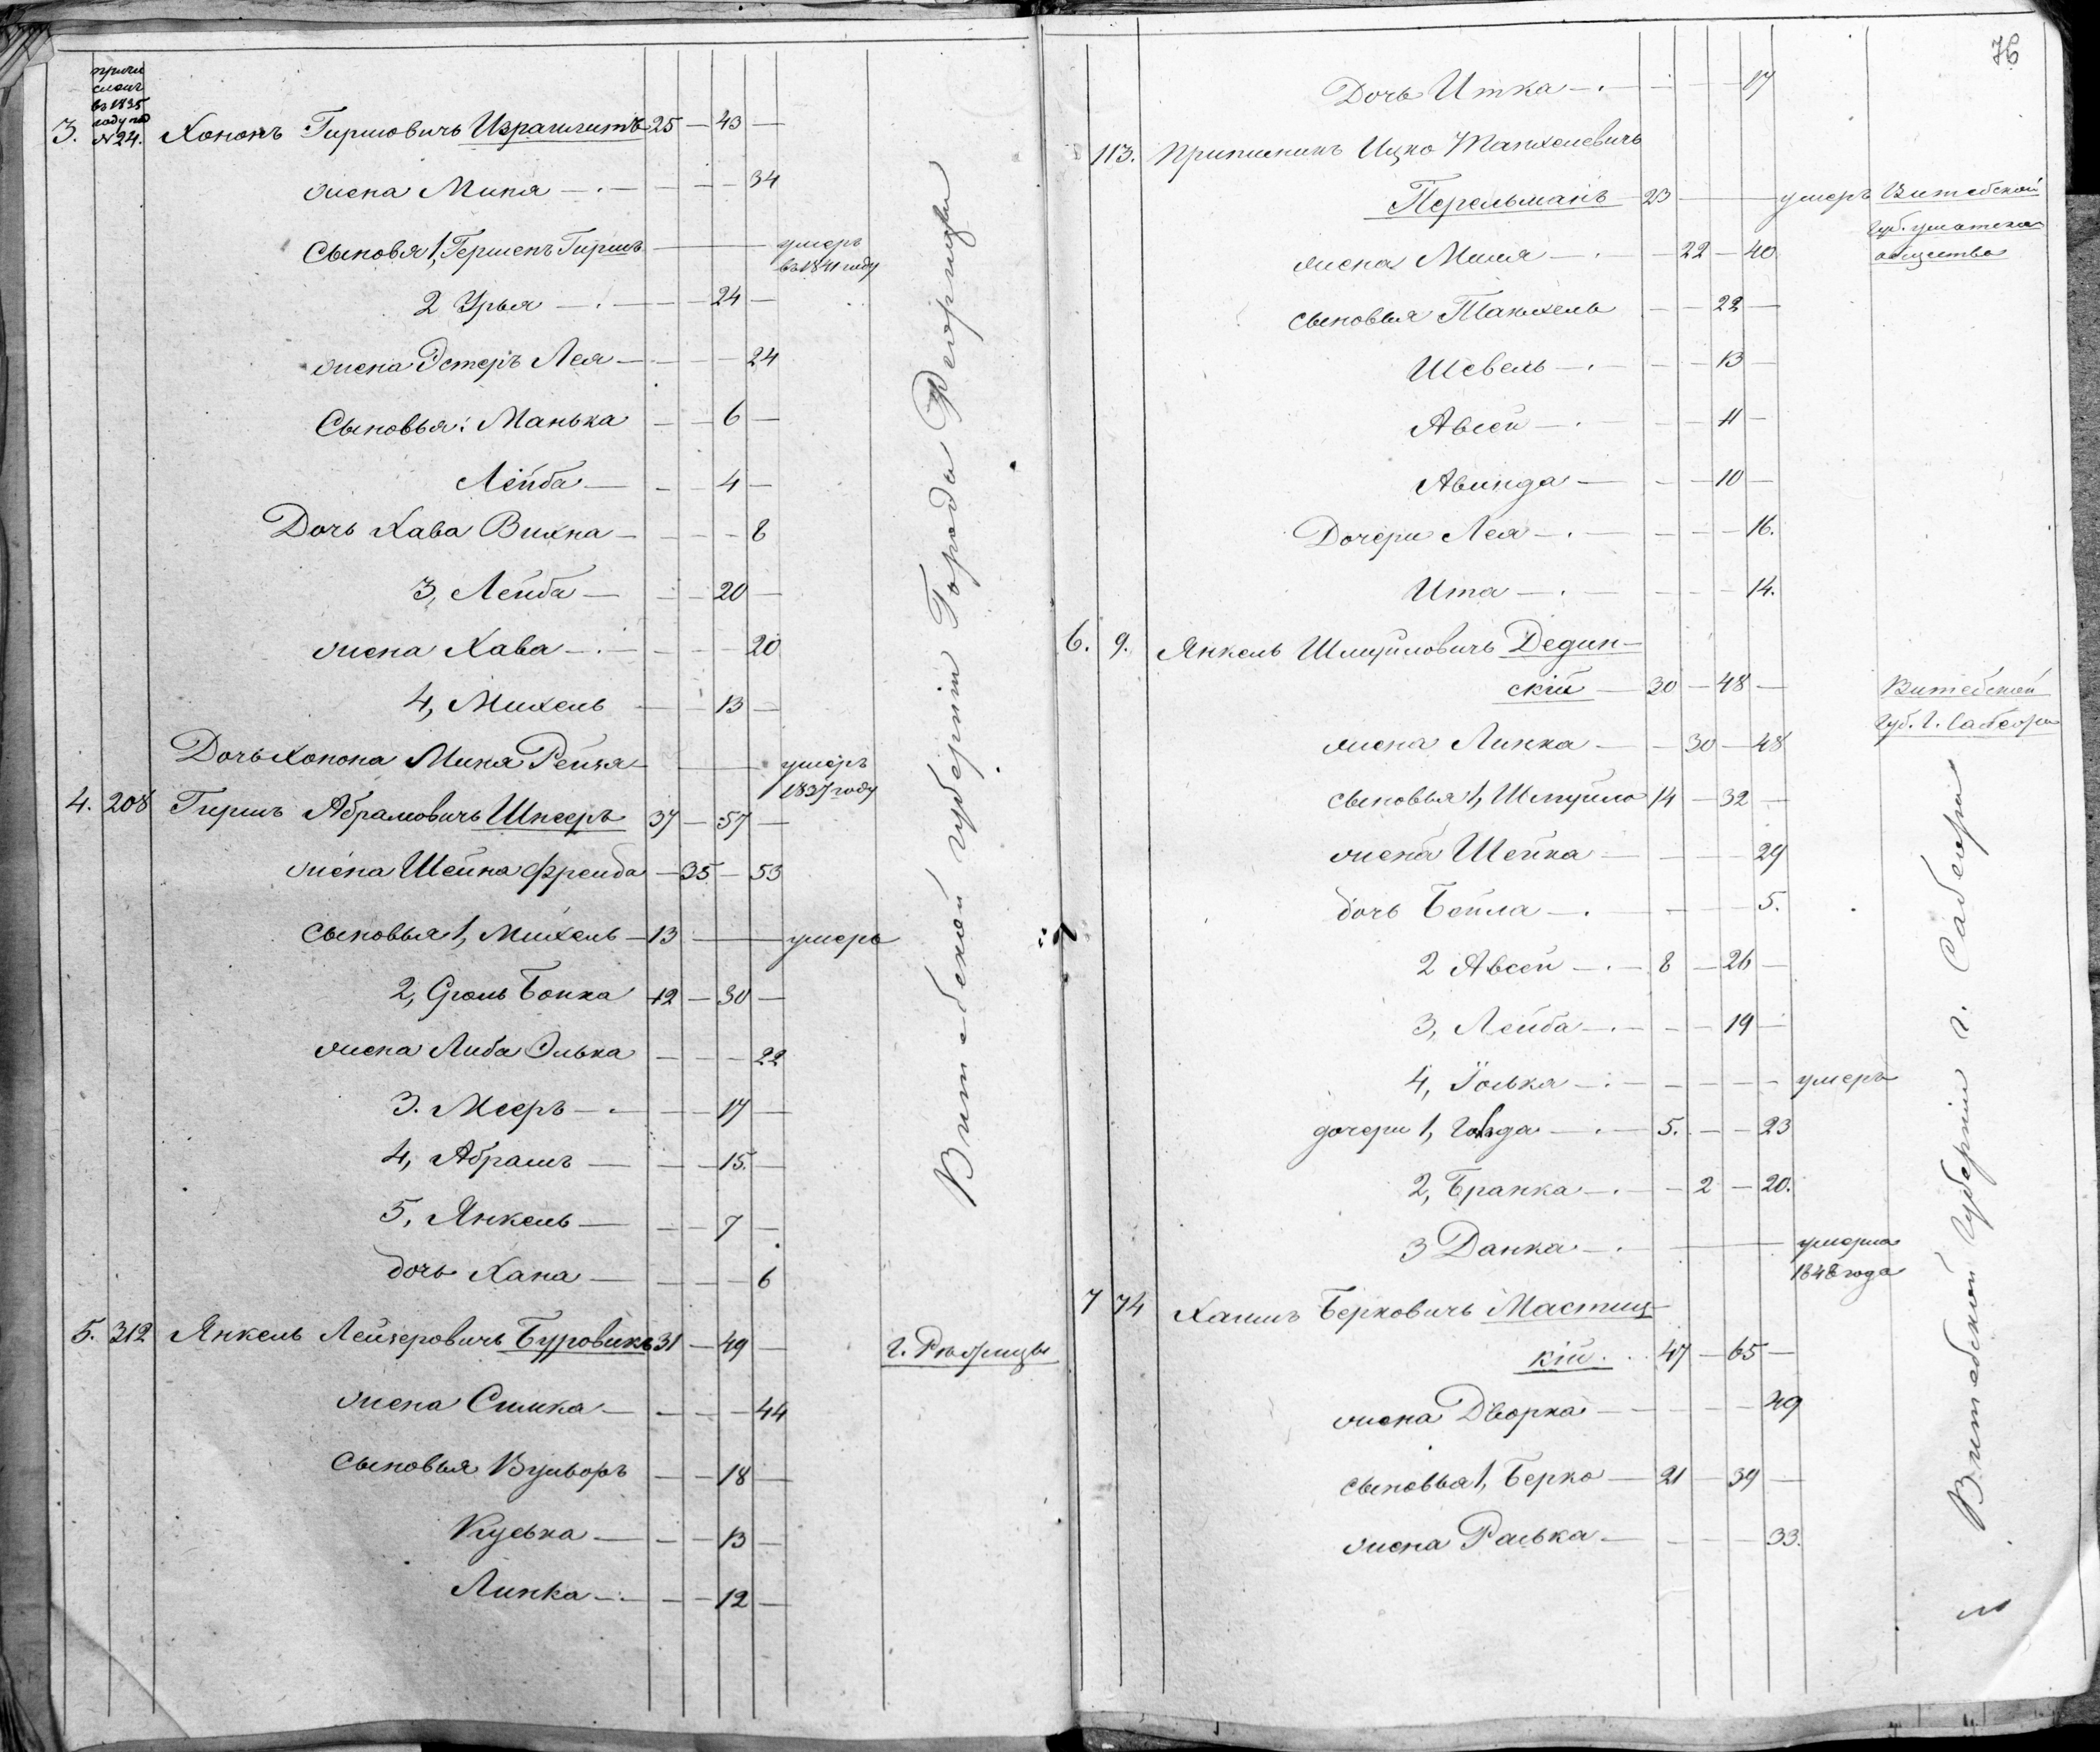 причи
сленъ
въ 1835
году под
№ 24.
3. Хононъ Гиршовичъ Израилитъ 25 — 43 —
жена Миня — . — — — — 34
Сыновья 1, Гершенъ Гиршъ — умеръ
въ 1841 году
2 Урья — . — — — 24 —
жена Эстеръ Лея — — — — 24
Сыновья: Манька — — 6 —
Лейба — — — 4 —
Дочь Хава Вихна — — — — 8
3, Лейба — — — 20 —
жена Хава — . — — — — 20
4, Михель — — 13 —
Дочь Хонона Миня Рейза — умеръ
1837 году
4. 208 Гиршъ Абрамовичъ Шпееръ 37 — 57 —
жена Шейна Фрейда — 35 — 53
Сыновья 1, Михель — 13 — умеръ
2, Сроль Бонка 12 — 30 —
жена Либа Элька — — — 22
3. Мееръ — . — — — 17 —
4, Абрамъ — — — 15. —
5, Янкель — — — 7 —
дочь Хана — — — — 6
5. 312 Янкель Лейзеровичъ Буровикъ 31 — 49 — г. Режицы
жена Симка — — — — 44
Сыновья Вульворъ — — 18 —
Куська — — — 13 —
Линка — . — — — 12 —
Витебской губерніи Города Режицы
76
Дочь Итка — . — — — 17
113. Припискикъ Ицко Танхелевичъ
Перельманъ — 23 — умеръ Витебской
губ. ушатска
общества
жена Миля — . — 22 — 40
Сыновья Танхель — — 22 —
Шевель — . — — — 13 —
Авсей — . — — — 11 —
Авинда — — — 10 —
Дочери Лея — . — — — — 16.
Ита — . — — — — 14.
6. 9. Янкель Шмуйловичъ Дедин-
скій — 30 — 48 — Витебской
губ. г. Себежа
жена Линка — — 30 — 48
Сыновья 1, Шмуйло 14 — 32 —
жена Шейна — — — — 29
дочь Бейла — . — — — 5.
2 Авсей — . — 8 — 26 —
3, Лейба — . — — — 19 —
4, Іолька — . — — — — — умеръ
дочери 1, Голда — . — 5. — — 23
2, Бранка — . — — 2 — 20.
3 Данка — . — умерла
1848 года
7 74 Хаимъ Берковичъ Мастиц-
кій . . 47 — 65 —
жена Дворка — — — — 49
Сыновья 1, Берко — 21 — 39 —
жена Ралька — — — — 33.
Витебской губерніи г. Себежа